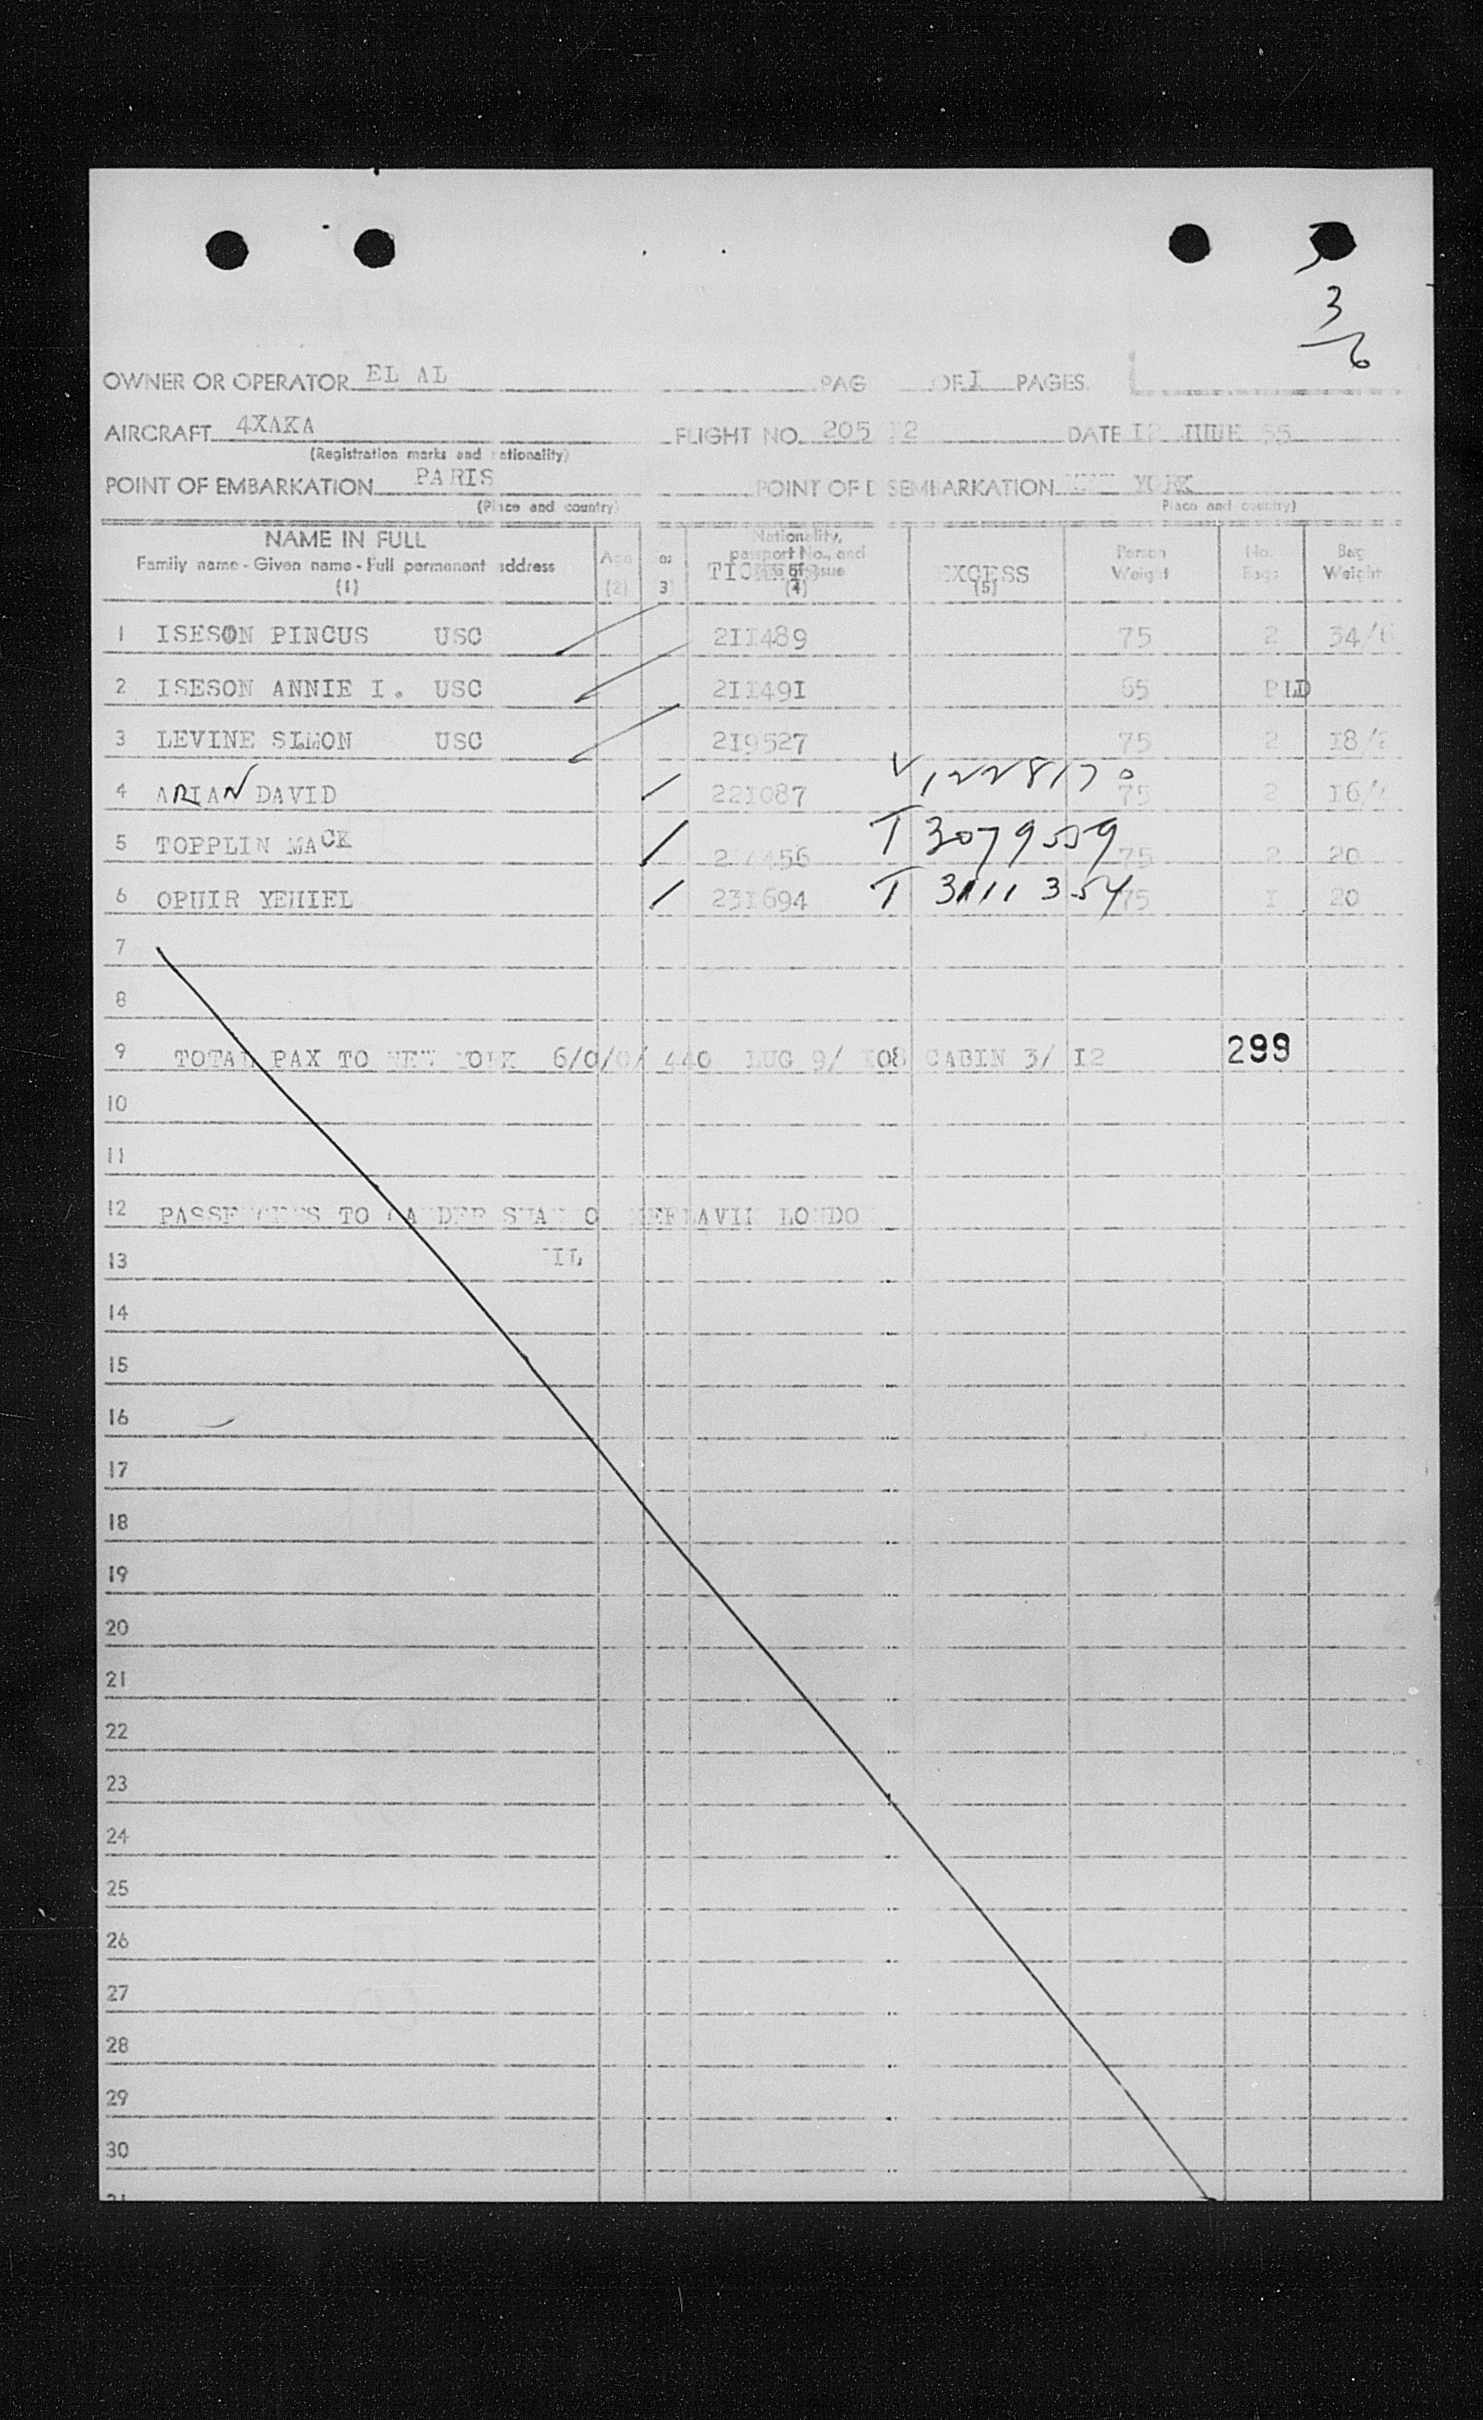 3
3
6
OWNER OR OPERATOR EL AL PAG OF I PAGES
AIRCRAFT 4XAKA FLIGHT NO. 205 12 DATE 12 JUNE 55
(Registration marks and nationality)
POINT OF EMBARKATION PARIS POINT OF DISEMBARKATION NEW YORK
(Place and country) Place and country)
NAME IN FULL
Family name - Given name - Full permanent address
(1)
Age
(2)
3)
Nationality,
passport No., and
TICKETS
(4)
EXCESS
(5)
Person
Weight
No.
Bags
Bag
Weight
1 ISESON PINCUS USC 211489 75 2 34/6
2 ISESON ANNIE I. USC 211491 65 PLD
3 LEVINE SIMON USC 219527 75 2 18/2
4 ARIAN DAVID 221087 V 1228170 75 2 16/
5 TOPPLIN MACK T 3079559 75 2 20
6 OPHIR YEHIEL 231694 T 3111354 75 1 20
7
8
9 TOTAL PAX TO NEW YORK 6/0/0/ 440 LUG 9/ 108 CABIN 3/ 12 299
10
11
12 PASSENGERS TO GANDER LONDO
13 NIL
14
15
16
17
18
19
20
21
22
23
24
25
26
27
28
29
30